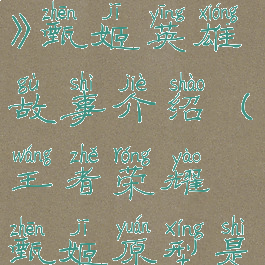 zhēn jī yīng xióng
》甄姬英雄
gù shì jiè shào
故事介绍（
wáng zhě róng yào
王者荣耀
zhēn jī yuán xíng shì
甄姬原型是